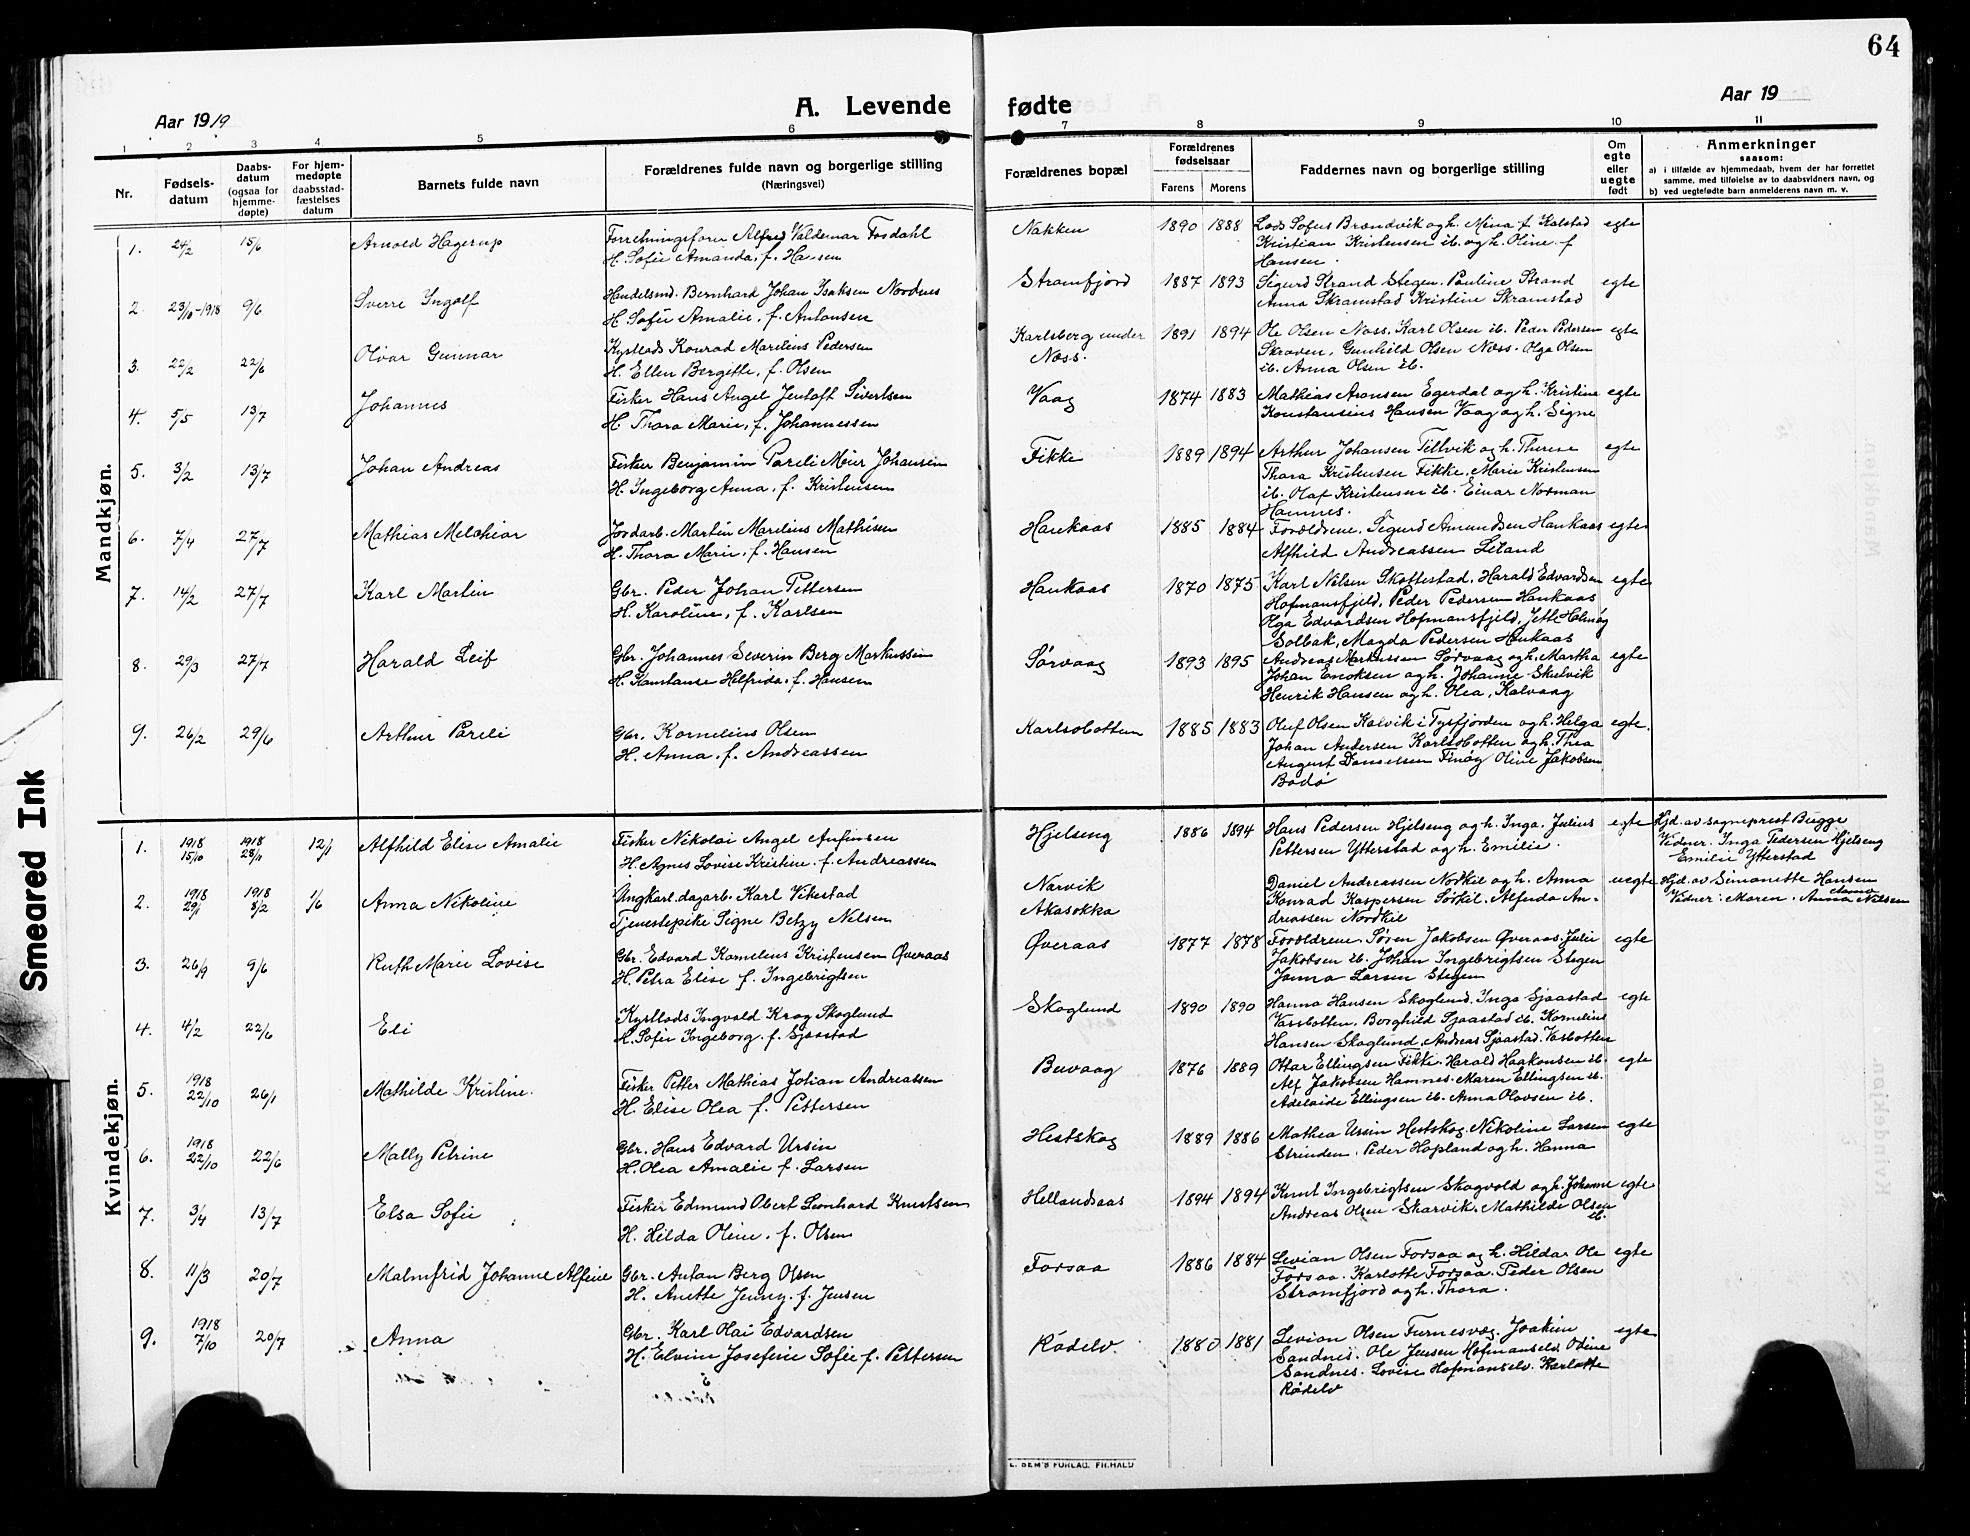 64
A. Levende fødte
Aar 1919
Aar 19
1 2 3 4 5 6 7 8 9 10 11
Nr.
Fødselsdatum
Daabsdatum (ogsaa for hjemmedøpte)
For hjemmedøpte daabsstadfæstelses datum
Barnets fulde navn
Forældrenes fulde navn og borgerlige stilling
(Næringsvei)
Forældrenes bopæl
Forældrenes fødselsaar
Farens Morens
Faddernes navn og borgerlige stilling
Om egte eller uegte født
Anmerkninger
saasom:
a) i tilfælde av hjemmedaab, hvem der har forrettet samme, med tilføielse av to daabsvidners navn, og
b) ved uegtefødte barn anmelderens navn m. v.
Mandkjøn.
1. 24/2 15/6 Arnold Hagerup
Forretningsfører Alfred Valdemar Fosdahl
H. Sofie Amanda, f. Hansen
Nakken 1890 1888
Lods Sofus Brændvik og h. Mina f. Kalstad
Kristian Kristensen ib. og h. Oline f.
Hansen.
egte
2. 23/10-1918 9/6 Sverre Ingolf
Handelsmd. Bernhard Johan Isaksen Nordnes
H. Sofie Amalie, f. Antonsen
Strømfjord 1887 1893
Sigurd Strand Stegen. Pauline Strand
Anna Skramstad Kristine Skramstad
egte
3. 22/2 22/6 Olvar Gunnar
Kystlods Konrad Marelius Pedersen
H. Ellen Bergette, f. Olsen
Karlsberg under
Næss. 1891 1894
Ole Olsen Næss. Karl Olsen ib. Peder Pedersen
Skroven, Gunhild Olsen Næss. Olga Olsen
ib. Anna Olsen ib.
egte
4. 5/5 13/7 Johannes
Fisker Hans Angel Jentoft Sivertsen
H. Thora Marie, f. Johannessen
Vaag 1874 1883
Mathias Aronsen Egerdal og h. Kristine
Konstansius Hansen Vaag og h. Signe
egte
5. 3/2 13/7 Johan Andreas
Fisker Benjamin Pareli Meier Johansen
H. Ingeborg Anna, f. Kristensen
Fikke 1889 1894
Arthur Johansen Tellvik og h. Therese
Thora Kristensen Fikke, Marie Kristensen
ib. Olaf Kristensen ib. Einar Norman
Hamnes.
egte
6. 7/4 27/7 Mathias Melchior
Jordarb. Martin Marelius Mathisen
H. Thora Marie, f. Hansen
Haukaas 1885 1884
Forældrene. Sigurd Amundsen Haukaas
Alfhild Andreassen Leland
egte
7. 14/2 27/7 Karl Martin
Gbr. Peder Johan Pettersen
H. Karoline, f. Karlsen
Haukaas 1870 1875
Karl Nelsen Skottestad, Harald Edvardsen
Hofmansfjeld, Peder Pedersen Haukaas
Olga Edvardsen Hofmansfjeld, Jette Holmøy
Solbak, Magda Pedersen Haukaas
egte
8. 29/3 27/7 Harald Leif
Gbr. Johannes Severin Berg Markussen
H. Konstanse Helfrida, f. Hansen
Sørvaag 1893 1895
Andreas Markussen Sørvaag og h. Martha
Johan Enoksen og h. Johanne Skulvik
Henrik Hansen og h. Olea, Kalvaag
egte
9. 26/2 29/6 Arthur Pareli
Gbr. Kornelius Olsen
H. Anna, f. Andreassen
Karlsobotten 1885 1883
Oluf Olsen Kalvik i Tysfjorden og h. Helga
Johan Andersen Karlsobotten og h. Thea
August Danielsen Finøy Oline Jakobsen
Bodø
egte.
Kvindekjøn.
1. 1918 15/10 1918 28/11 12/1 Alfhild Elise Amalie
Fisker Nikolai Angel Anfinsen
H. Agnes Lovise Kristine, f. Andreassen
Hjelseng 1886 1894
Hans Pedersen Hjelseng og h. Inga. Julius
Pettersen Ytterstad og h. Emilie.
egte
Hjd. av sogneprest Bugge
Vidner: Inga Pedersen Hjelseng
Emilie Ytterstad
2. 1918 29/1 1918 8/2 1/6 Anna Nikoline
Ungkarl. dagarb. Karl Vikestad
Tjenestepike Signe Betzy Nelsen
Narvik
Akasokka
Daniel Andreassen Nordkil og h. Anna
Konrad Kaspersen Sørkil. Alfrida Andreassen Nordkil
uegte
Hjd. av Simonette Hansen
Vidner: Maren, Anna Nelsen
3. 26/9 9/6 Ruth Marie Lovise
Gbr. Edvard Kornelius Kristensen Øveraas
H. Petra Elise f. Ingebrigtsen
Øveraas 1877 1878
Forældrene. Søren Jakobsen Øveraas. Julie
Jakobsen ib. Johan Ingebrigtsen Stegen
Janna Larsen Stegen
egte
4. 4/2 22/6 Eli
Kystlods Ingvald Krag Skoglund
H. Sofie Ingeborg, f. Sjaastad
Skoglund 1890 1890
Hanna Hansen Skoglund. Inga Sjaastad
Vassbotten. Borghild Sjaastad ib. Kornelius
Hansen Skoglund. Andreas Sjaastad. Vasbotten
egte
5. 1918 22/10 26/1 Mathilde Kristine.
Fisker Petter Mathias Johan Andreassen
H. Elise Olea f. Pettersen
Buvaag 1876 1889
Ottar Ellingsen Fikke. Harald Haakonsen ib.
Alf Jakobsen Hamnes. Maren Ellingsen ib.
Adelaide Ellingsen ib. Anna Olavsen ib.
egte
6. 1918 22/10 22/6 Mally Petrine
Gbr. Hans Edvard Ursin
H. Olea Amalie f. Larsen
Hestskog 1889 1886
Mathea Ursin Hestskog. Nikoline Larsen
Strinden. Peder Hopland og h. Hanna
egte
7. 3/4 13/7 Elsa Sofie
Fisker Edmund Obert Leonhard Knutsen
H. Hilda Oline, f. Olsen
Hellandsaas 1894 1894
Knut Ingebrigtsen Skogvold og h. Johanne
Andreas Olsen Skarvik. Mathilde Olsen
ib.
egte
8. 11/3 20/7 Malmfrid Johanne Alfine
Gbr. Anton Berg Olsen
H. Anette Jenny. f. Jensen
Forsaa 1886 1884
Levian Olsen Forsaa og h. Hilda. Ole
Forsaa. Karlotte Forsaa. Peder Olsen
Strømfjord og h. Thora.
egte
9. 1918 7/10 20/7 Anna
Gbr. Karl Olai Edvardsen
H. Elvine Josefine Sofie f. Pettersen
Rødelv 1880 1881
Levian Olsen Furnesvæg. Joakim
Sandnes. Ole Jensen Hofmanselv. Odine
Sandnes. Lovise Hofmanselv. Karlotte
Rødelv
egte
E. SEM'S FORLAG, FR.HALD
Smeared Ink